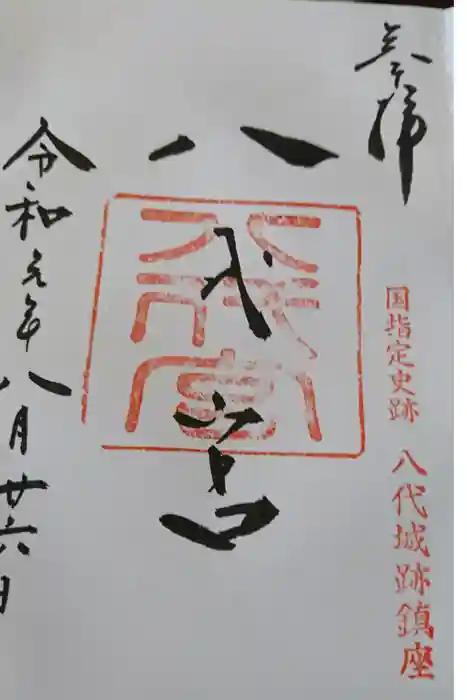 奉拝
国指定史跡 八代城跡鎮座
八代宮
八代宮
令和元年八月廿六日